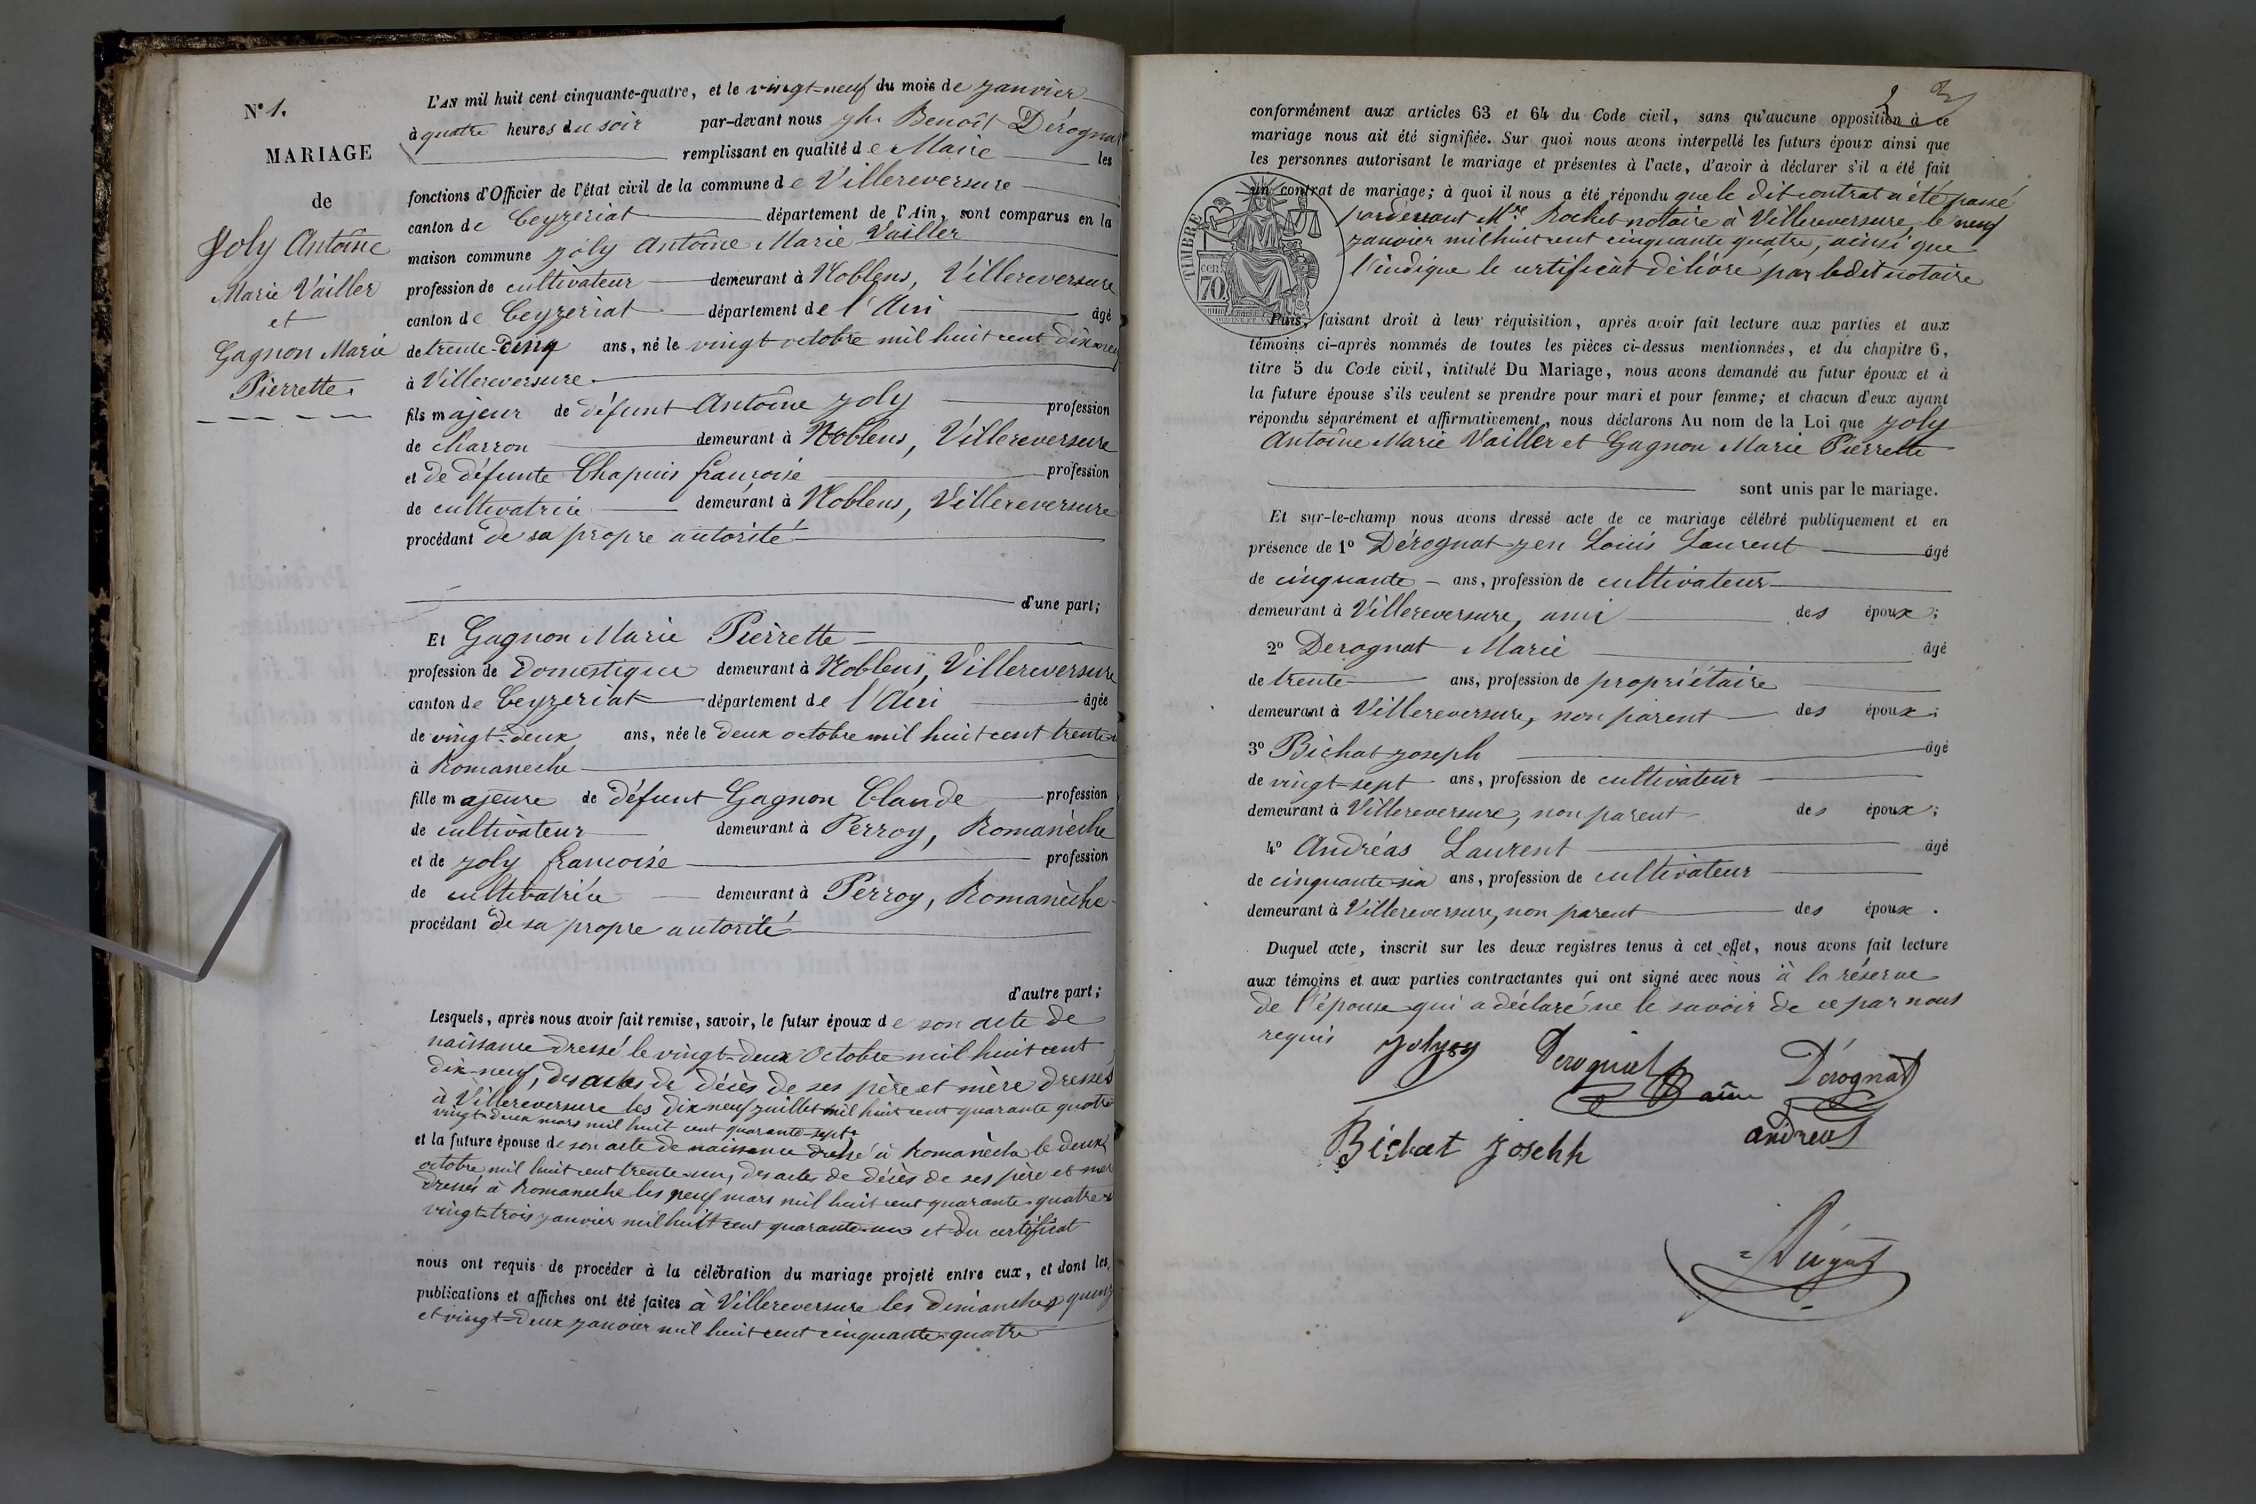 N° 1.
MARIAGE
de
Joly Antoine
Marie Vailler
et
Gagnon Marie
Pierrette.
L'AN mil huit cent cinquante-quatre, et le vingt-neuf du mois de janvier
à quatre heures du soir par-devant nous jh. Benoît Dérognat
remplissant en qualité de Maire les
fonctions d'Officier de l'état civil de la commune de Villereversure
canton de Ceyzeriat département de l'Ain, sont comparus en la
maison commune Joly Antoine Marie Vailler
profession de cultivateur demeurant à Noblens, Villereversure
canton de Ceyzeriat département de l'Ain âgé
de trente-cinq ans, né le vingt octobre mil huit cent dix neuf
à Villereversure
fils majeur de défunt Antoine Joly profession
de Charron demeurant à Noblens, Villereversure
et de défunte Chapuis françoise profession
de cultivatrice demeurant à Noblens, Villereversure
procédant de sa propre autorité
d'une part;
Et Gagnon Marie Pierrette
profession de Domestique demeurant à Noblens, Villereversure
canton de Ceyzeriat département de l'Ain âgée
de vingt-deux ans, née le deux octobre mil huit cent trente
à Romaneche
fille majeure de défunt Gagnon Claude profession
de cultivateur demeurant à Perroy, Romanèche
et de Joly françoise profession
de cultivatrice demeurant à Perroy, Romanèche
procédant de sa propre autorité
d'autre part;
Lesquels, après nous avoir fait remise, savoir, le futur époux de son acte de
naissance dressé le vingt-deux octobre mil huit cent
dix-neuf, des actes de décès de ses père et mère dressés
à Villereversure les dix neuf juillet mil huit cent quarante quatre
vingt-deux mars mil huit cent quarante-sept
et la future épouse de son acte de naissance dressé à Romanèche le deux
octobre mil huit cent trente-un, des actes de décès de ses père et mère
dressés à Romaneche les neuf mars mil huit cent quarante-quatre
vingt-trois janvier mil huit cent quarante-un et du certificat
nous ont requis de procéder à la célébration du mariage projeté entre eux, et dont les
publications et affiches ont été faites à Villereversure les dimanches quinze
et vingt-deux janvier mil huit cent cinquante-quatre
conformément aux articles 63 et 64 du Code civil, sans qu'aucune opposition à ce
mariage nous ait été signifiée. Sur quoi nous avons interpellé les futurs époux ainsi que
les personnes autorisant le mariage et présentes à l'acte, d'avoir à déclarer s'il a été fait
un contrat de mariage; à quoi il nous a été répondu que le dit contrat a été passé
pardevant Me Rochet notaire à Villereversure, le neuf
janvier mil huit cent cinquante quatre, ainsi que
l'indique le certificat délivré par ledit notaire
TIMBRE
cen
70
Puis, faisant droit à leur réquisition, après avoir fait lecture aux parties et aux
témoins ci-après nommés de toutes les pièces ci-dessus mentionnées, et du chapitre 6,
titre 5 du Code civil, intitulé Du Mariage, nous avons demandé au futur époux et à
la future épouse s'ils veulent se prendre pour mari et pour femme; et chacun d'eux ayant
répondu séparément et affirmativement, nous déclarons Au nom de la Loi que Joly
Antoine Marie Vailler et Gagnon Marie Pierrette
sont unis par le mariage.
Et sur-le-champ nous avons dressé acte de ce mariage célébré publiquement et en
présence de 1° Dérognat jen Louis Laurent âgé
de cinquante ans, profession de cultivateur
demeurant à Villereversure, ami des époux;
2° Derognat Marie âgé
de trente ans, profession de propriétaire
demeurant à Villereversure, non parent des époux;
3° Bichat Joseph âgé
de vingt-sept ans, profession de cultivateur
demeurant à Villereversure, non parent des époux;
4° Andréas Laurent âgé
de cinquante-six ans, profession de cultivateur
demeurant à Villereversure, non parent des époux.
Duquel acte, inscrit sur les deux registres tenus à cet effet, nous avons fait lecture
aux témoins et aux parties contractantes qui ont signé avec nous à la réserve
de l'épouse qui a déclaré ne le savoir de ce par nous
requis
Derognat
Dérognat
Bichat Josehh
andreas